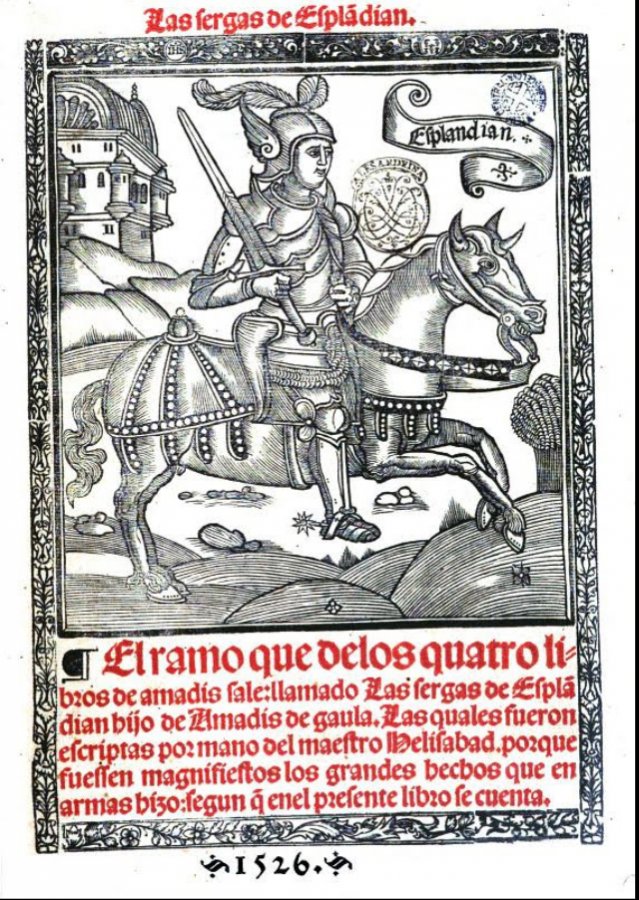 Las sergas de Esplãdian.
Esplandian.
¶ El ramo que delos quatro li-
bros de amadis sale: llamado Las sergas de Esplã
dian hijo de Amadis de gaula. Las quales fueron
escriptas por mano del maestro Helisabad. porque
fuessen magnifiestos los grandes hechos que en
armas hizo: segun q̃ enel presente libro se cuenta.
1526.